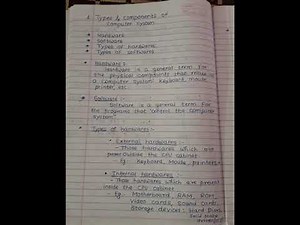 * Types & components of
Computer System
* Hardware
* Software
* Types of hardwares
* Types of software
* Hardware :
Hardware is a general term for
the physical components that
a computer system Keyboard, mouse
printer, etc.
* Software
Software is a general term for
the programs that the computer
system
* Types of hardwares :-
* External hardwares :-
- Those hardwares which are
outside the CPU cabinet
- Eg. Keyboard, Mouse,
* Internal hardwares :-
- Those hardwares which are present
inside the CPU cabinet
- Eg. Motherboard, RAM, ROM,
Video Cards, Sound Cards,
Storage devices, Hard Disk